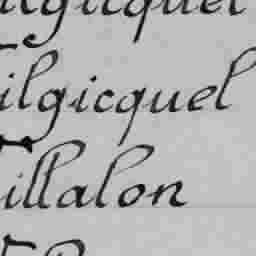 ilgicquel
ilgicquel
illalon